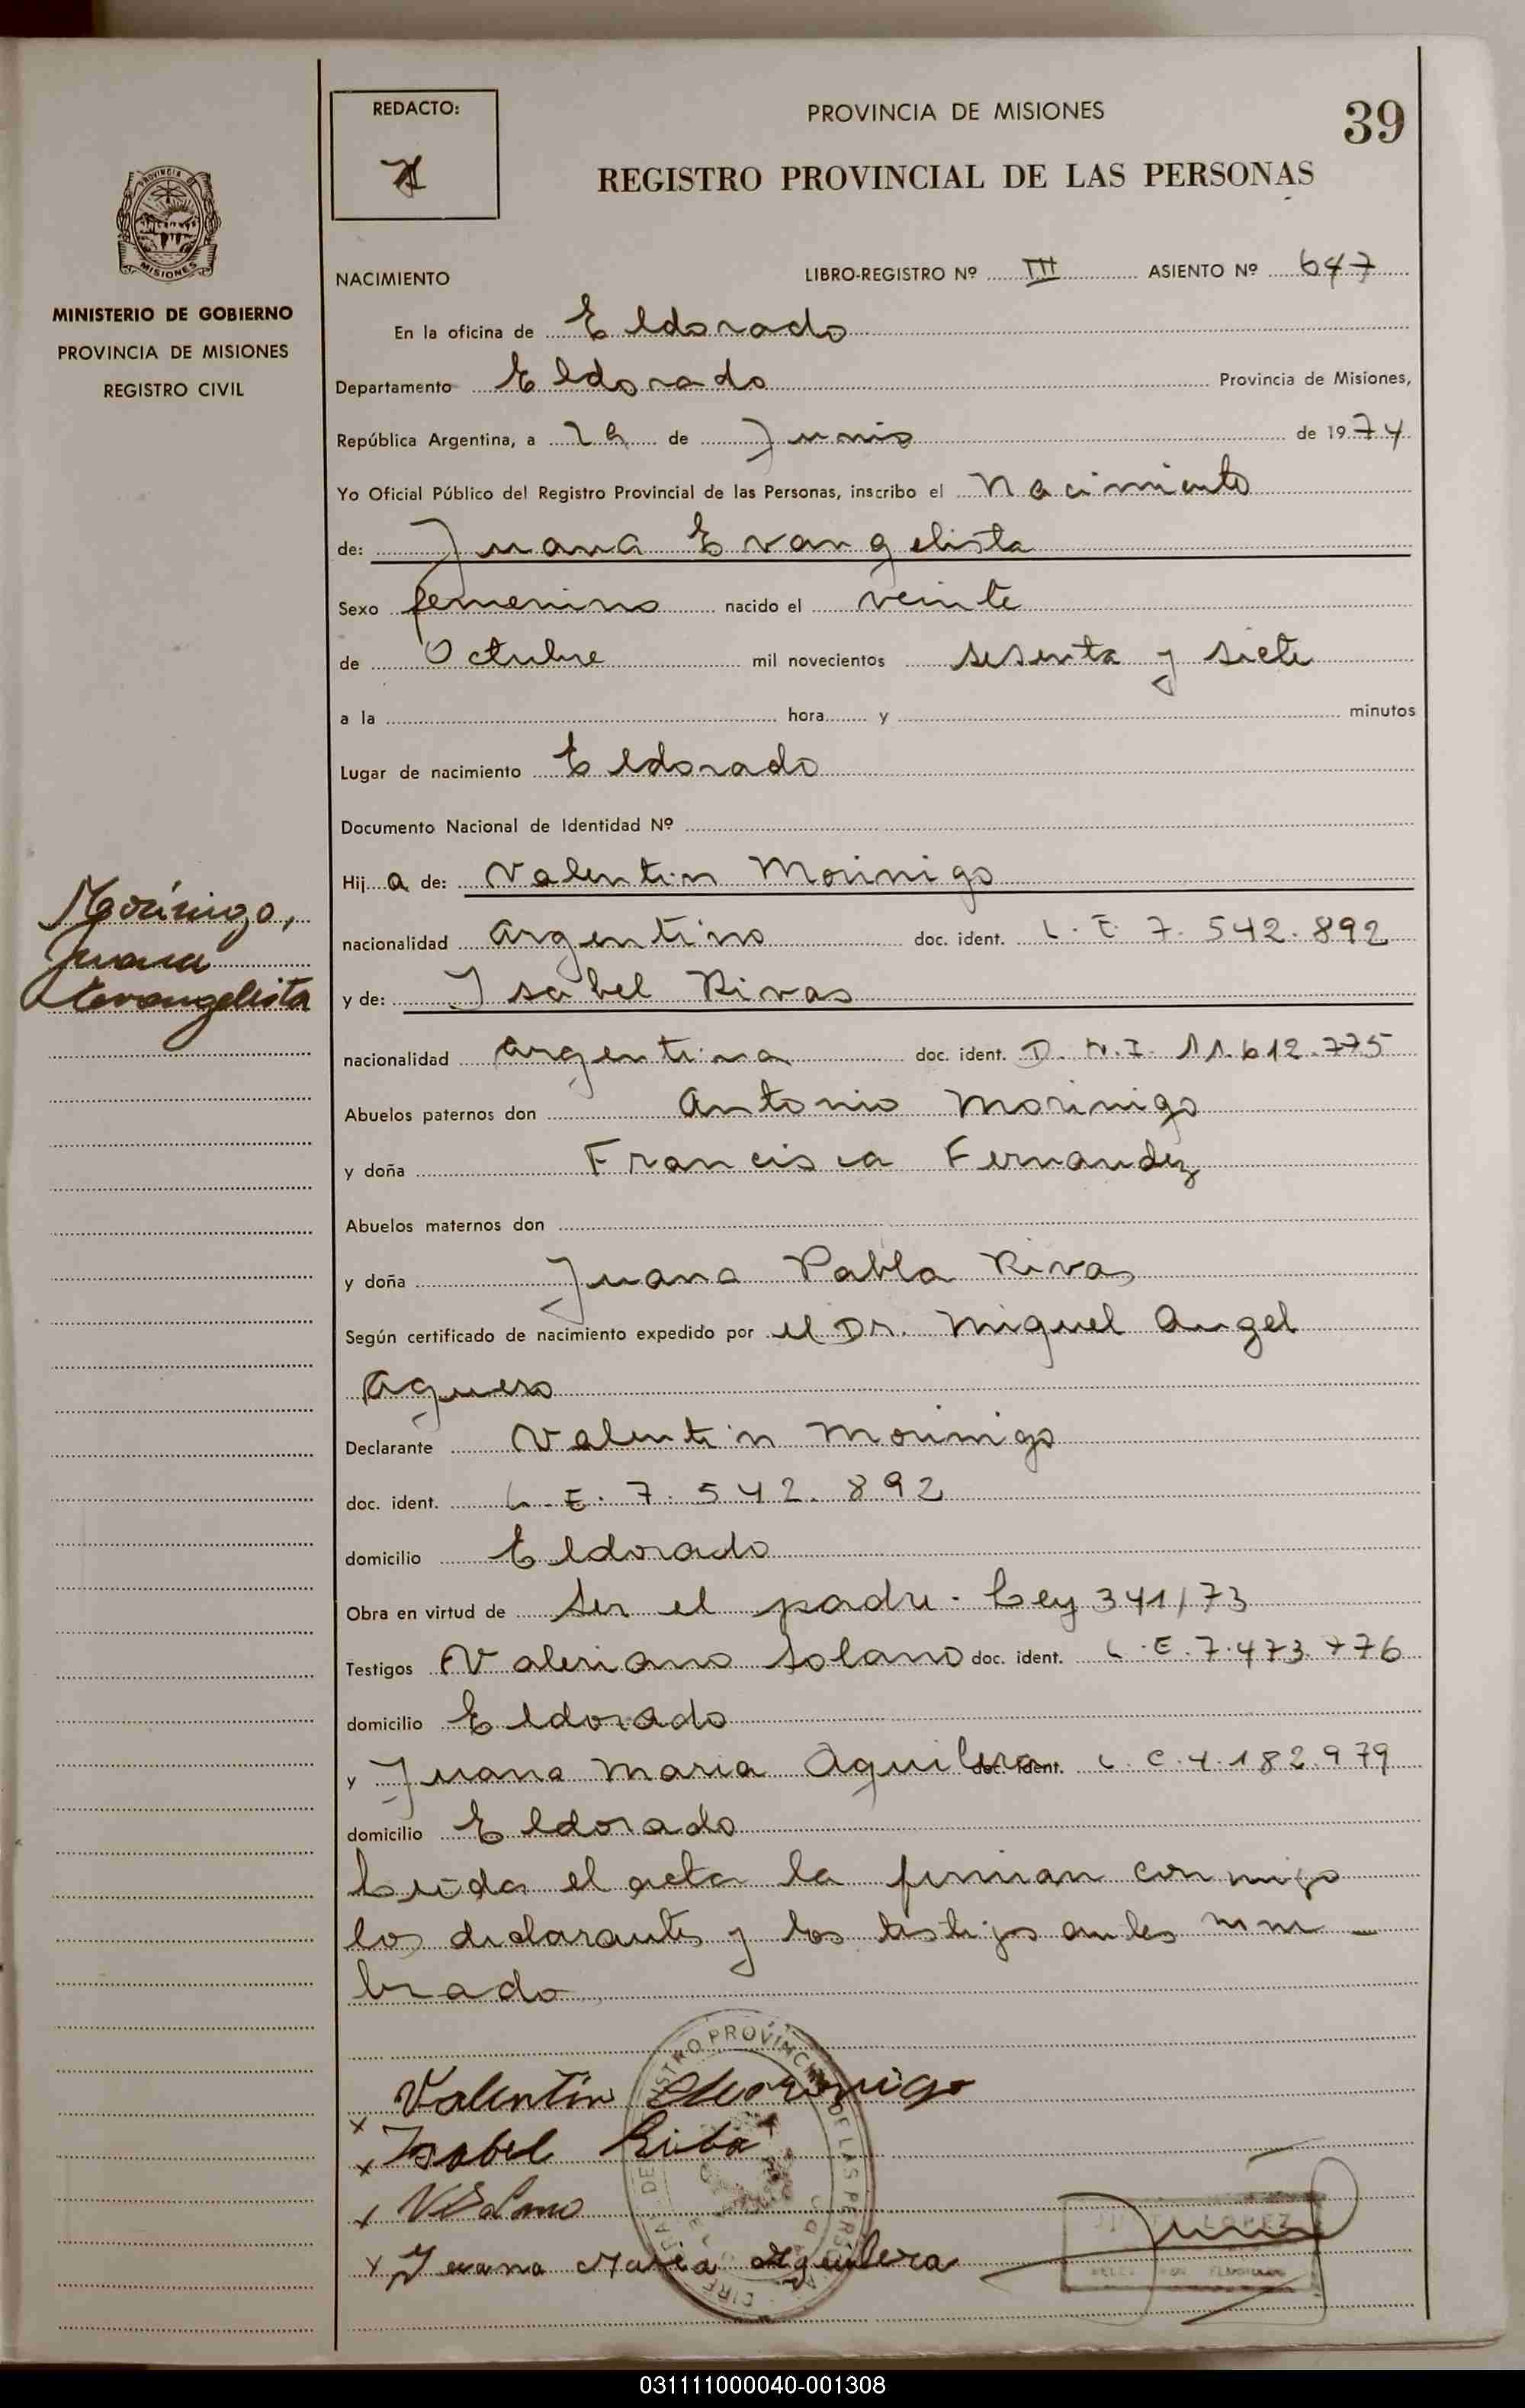 REDACTO:
PROVINCIA DE MISIONES
39
REGISTRO PROVINCIAL DE LAS PERSONAS
PROVINCIA DE
MISIONES
MINISTERIO DE GOBIERNO
PROVINCIA DE MISIONES
REGISTRO CIVIL
NACIMIENTO LIBRO-REGISTRO Nº III ASIENTO Nº 647
En la oficina de Eldorado
Departamento Eldorado Provincia de Misiones,
República Argentina, a de Junio de 1974
Yo Oficial Público del Registro Provincial de las Personas, inscribo el Nacimiento
de: Juana Evangelista
Sexo femenino nacido el veinte
de Octubre mil novecientos sesenta y siete
a la hora y minutos
Lugar de nacimiento Eldorado
Documento Nacional de Identidad Nº
Hij a de: Valentin Morinigo
Morínigo,
Juana
Evangelista
nacionalidad argentino doc. ident. L. E. 7. 542. 892
y de: Isabel Rivas
nacionalidad argentina doc. ident. D. N. I. 11.612.775
Abuelos paternos don Antonio Morinigo
y doña Francisca Fernandez
Abuelos maternos don
y doña Juana Pabla Rivas
Según certificado de nacimiento expedido por el Dr. Miguel Angel
Aguero
Declarante Valentin Morinigo
doc. ident. L. E. 7. 542. 892
domicilio Eldorado
Obra en virtud de ser el padre - Ley 341/73
Testigos Valeriano Solano doc. ident. L. E. 7.473.776
domicilio Eldorado
y Juana Maria Aguilera doc. ident. L. C. 4.182.979
domicilio Eldorado
Leida el acta la firman conmigo
los declarantes y los testigos antes nom-
brado
x Valentín Morinigo
x Isabel Riba
x VSolano
x Juana Maria Aguilera
LOPEZ
031111000040-001308